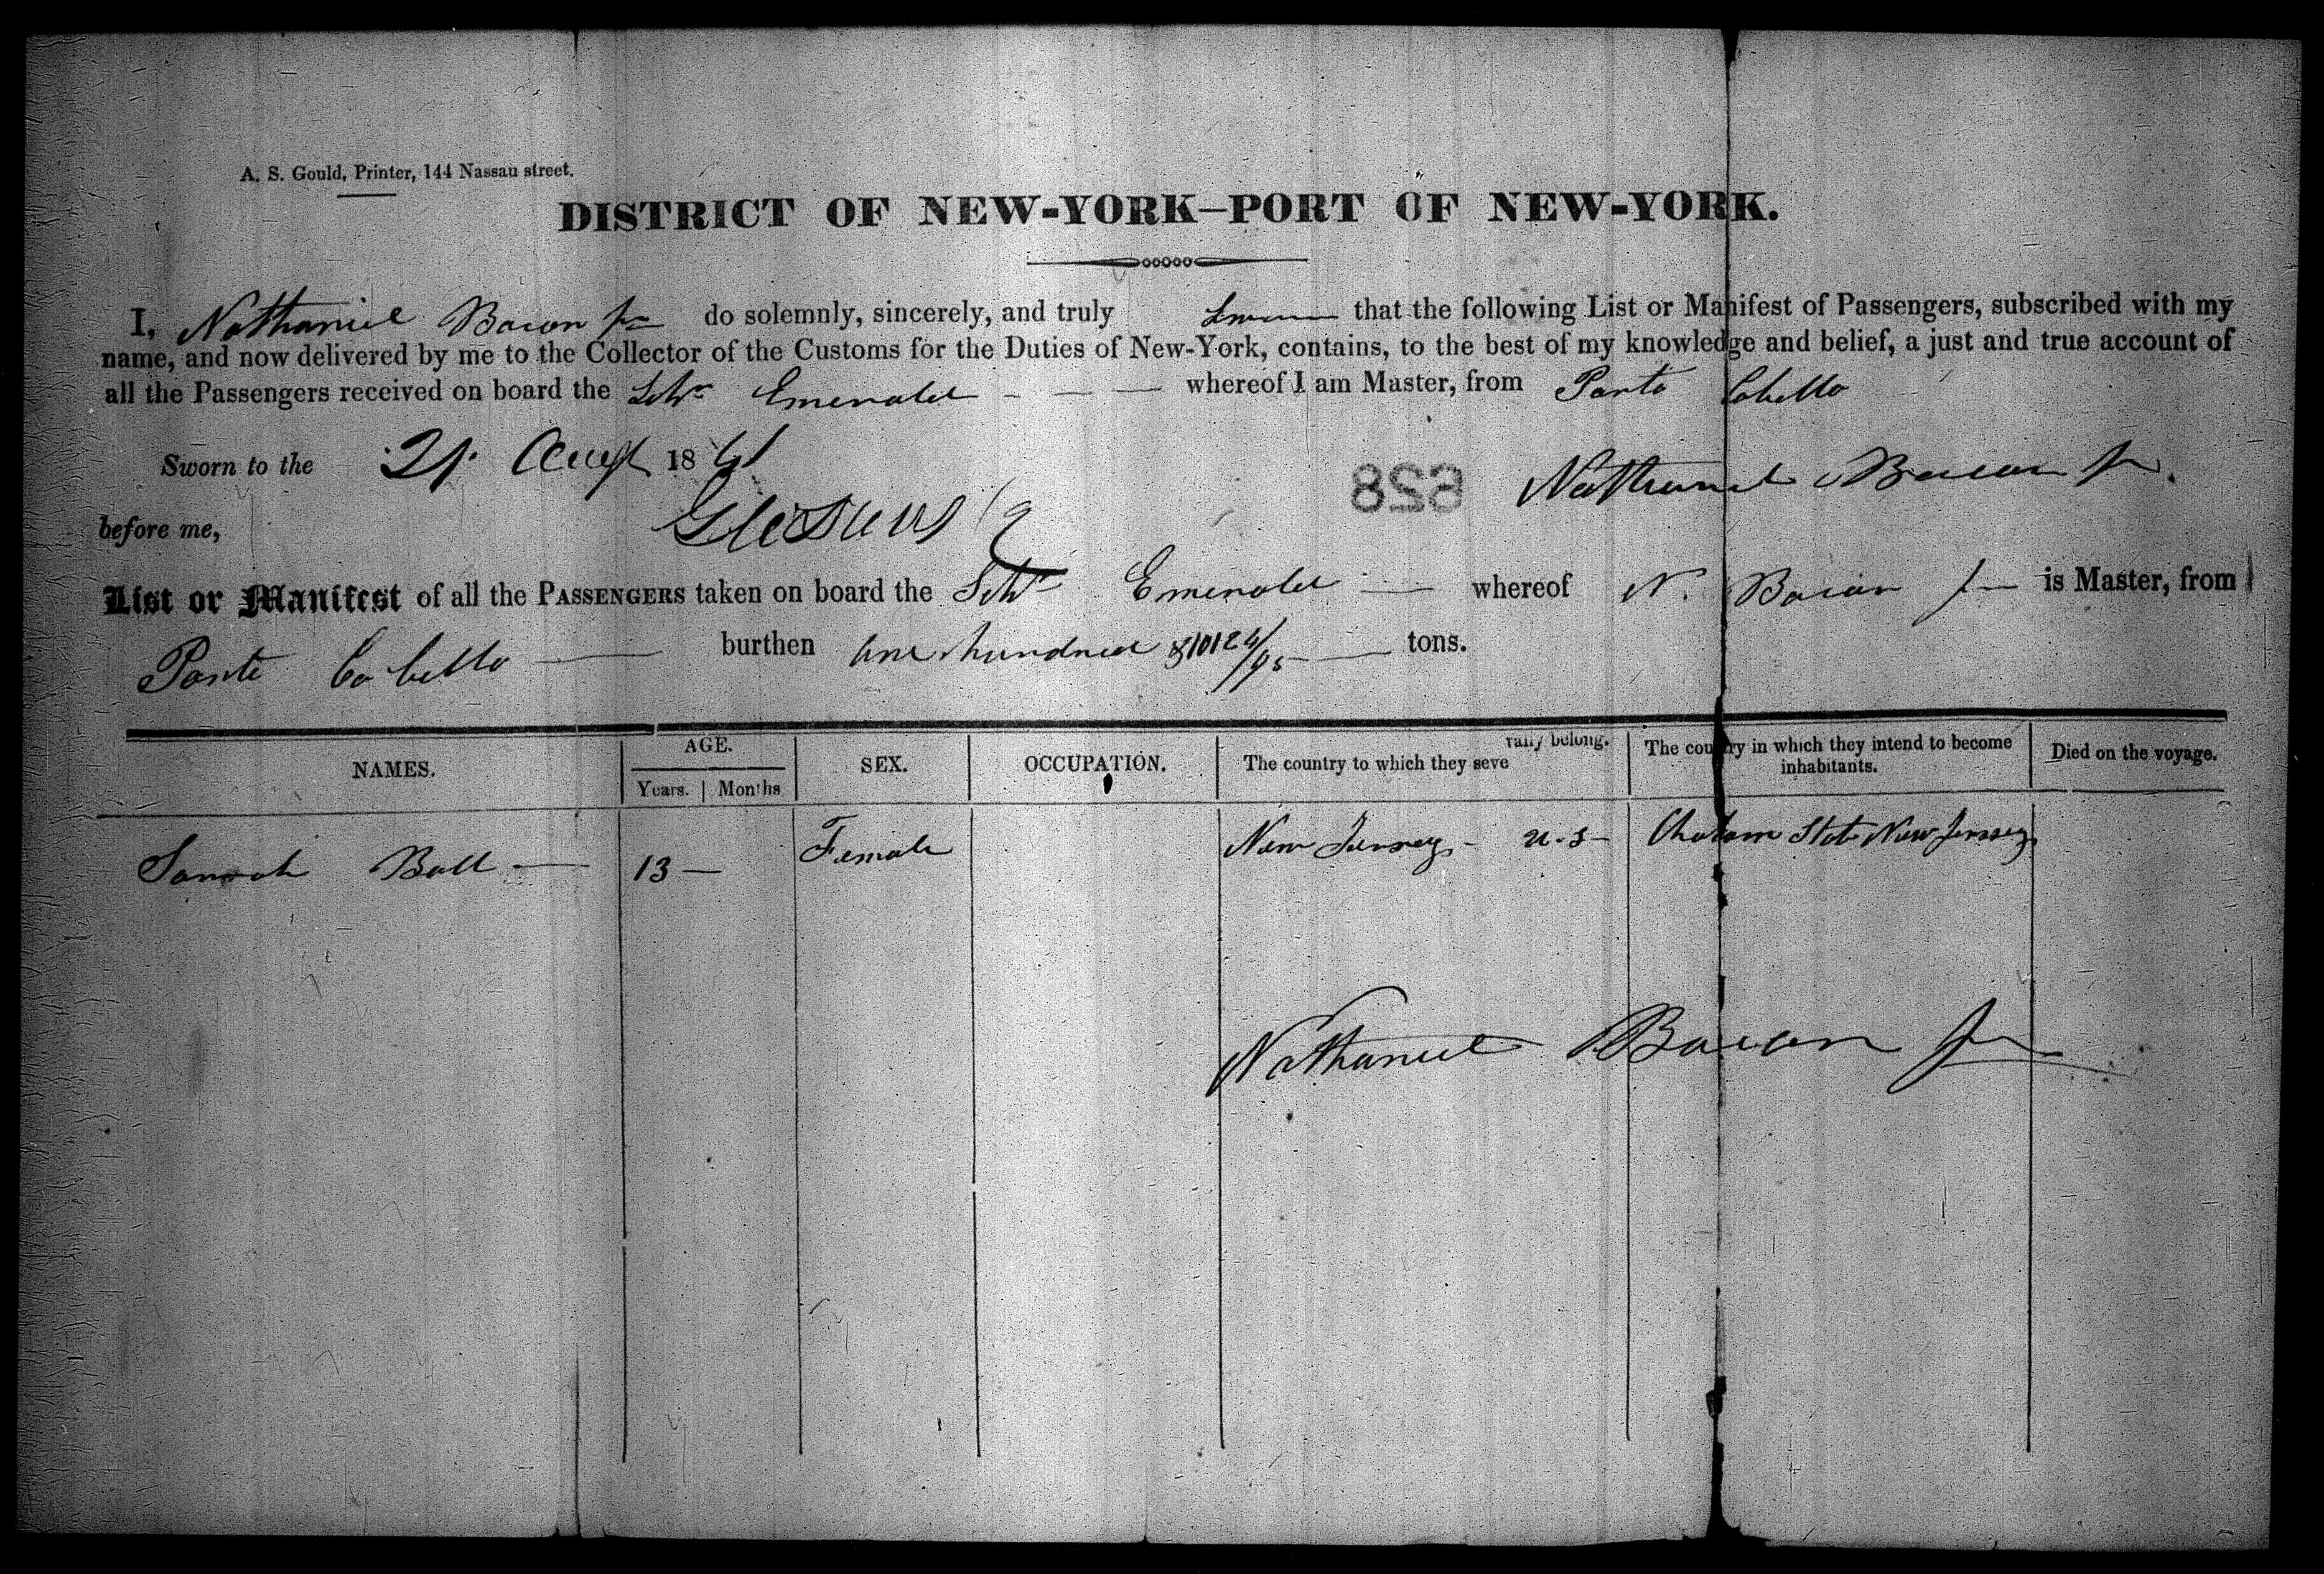 A. S. Gould, Printer, 144 Nassau street.
DISTRICT OF NEW-YORK—PORT OF NEW-YORK.
I, Nathaniel Bacon Jr do solemnly, sincerely, and truly that the following List or Manifest of Passengers, subscribed with my
name, and now delivered by me to the Collector of the Customs for the Duties of New-York, contains, to the best of my knowledge and belief, a just and true account of
all the Passengers received on board the Schr Emerald whereof I am Master, from Porto Cabello
Sworn to the 21. Augt 1841
828 Nathaniel Bacon Jr.
before me,
List or Manifest of all the PASSENGERS taken on board the Schr Emerald whereof N. Bacon Jr is Master, from
Porto Cabello burthen one hundred tons.
NAMES. AGE. Years. Months SEX. OCCUPATION. The country to which they seve rally belong. The country in which they intend to become inhabitants. Died on the voyage.
Sarah Ball 13 Female New Jersey U.S Chatam State New Jersey
Nathaniel Bacon Jr